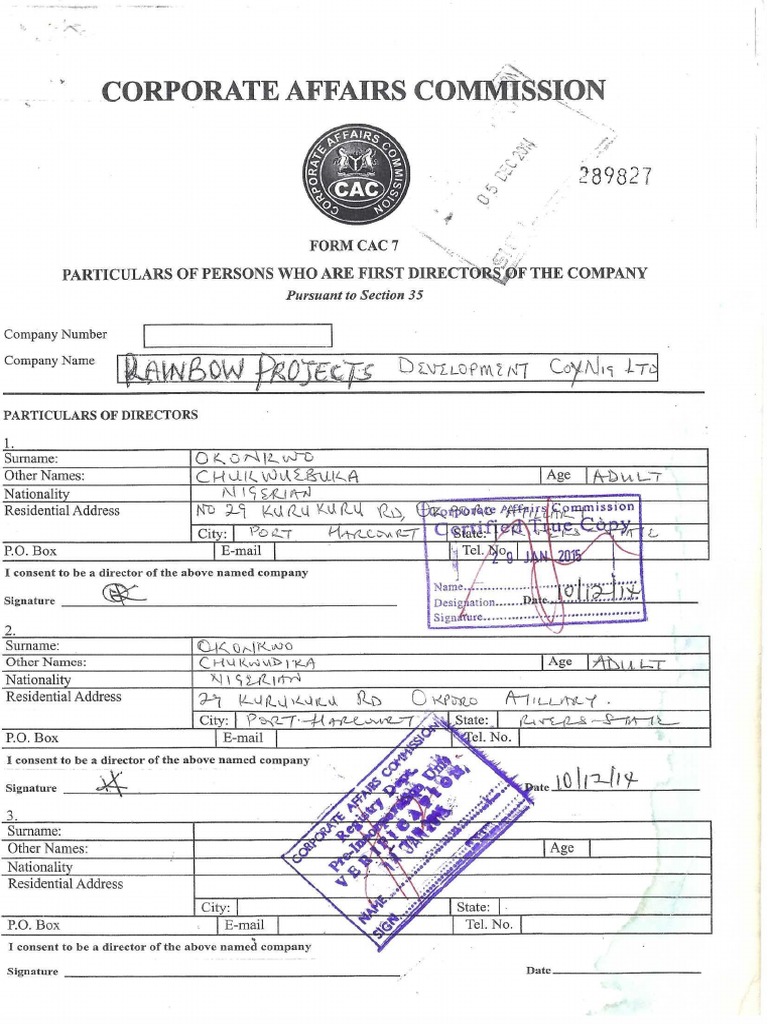 CORPORATE AFFAIRS COMMISSION
CORPORATE AFFAIRS COMMISSION
CAC
05 DEC 2014
289827
FORM CAC 7
PARTICULARS OF PERSONS WHO ARE FIRST DIRECTORS OF THE COMPANY
Pursuant to Section 35
Company Number
Company Name RAINBOW PROJECTS DEVELOPMENT COY NIG LTD
PARTICULARS OF DIRECTORS
1.
Surname: OKONKWO
Other Names: CHUKWUEBUKA Age ADULT
Nationality NIGERIAN
Residential Address NO 29 KURUKURU RD, OKPORO ATILLARY
City: PORT HARCOURT State: RIVERS STATE
P.O. Box E-mail Tel. No.
I consent to be a director of the above named company
Signature Date 10/12/14
Corporate Affairs Commission
Certified True Copy
29 JAN 2015
Name
Designation
Signature
2.
Surname: OKONKWO
Other Names: CHUKWUDIKA Age ADULT
Nationality NIGERIAN
Residential Address 29 KURUKURU RD OKPORO ATILLARY.
City: PORT-HARCOURT State: RIVERS-STATE
P.O. Box E-mail Tel. No.
I consent to be a director of the above named company
Signature Date 10/12/14
CORPORATE AFFAIRS COMMISSION
Registry Dept.
Pre-Incorporation Unit
VERIFICATION
JAN 2015
NAME
SIGN.
3.
Surname:
Other Names: Age
Nationality
Residential Address
City: State:
P.O. Box E-mail Tel. No.
I consent to be a director of the above named company
Signature Date